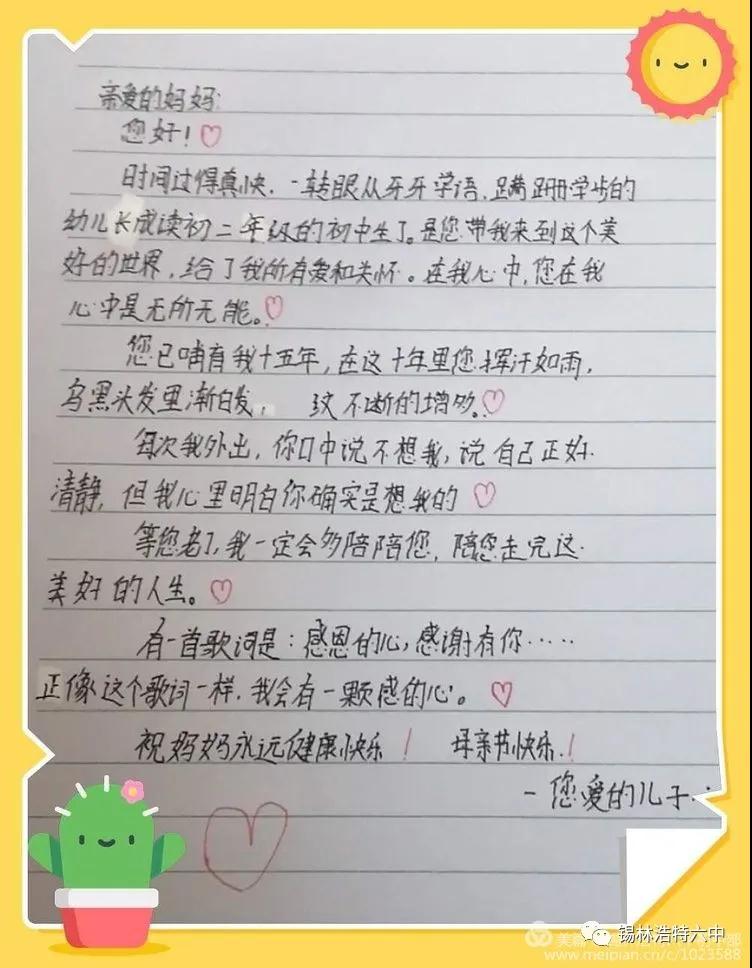 亲爱的妈妈:
您好!
时间过得真快,一转眼从牙牙学语,蹒跚学步的
幼儿长成读初二年级的初中生了。是您带我来到这个美
好的世界,给了我所有爱和关怀。在我心中,您在我
心中是无所无能。
您已哺育我十五年,在这十年里您挥汗如雨,
乌黑头发里渐白发, 纹不断的增多。
每次我外出,你口中说不想我,说自己正好
清静,但我心里明白你确实是想我的
等您老了,我一定会多陪陪您,陪您走完这
美好的人生。
有一首歌词是:感恩的心,感谢有你……
正像这个歌词一样,我会有一颗感的心。
祝妈妈永远健康快乐! 母亲节快乐!
-您爱的儿子
美篇
锡林浩特六中
www.meipian.cn/c/1023588